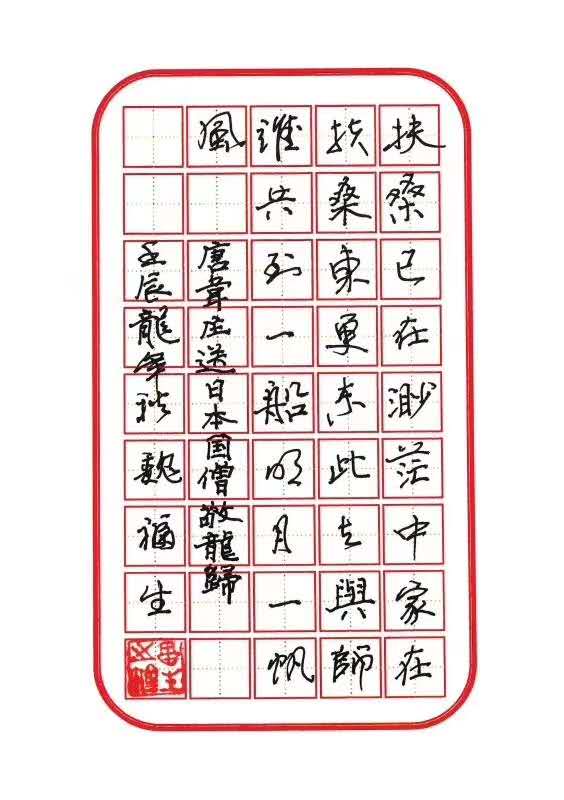 扶桑已在渺茫中家在
扶桑東更东此去與師
誰共到一船明月一帆
風 唐韋庄送日本国僧敬龍歸
壬辰龍年秋魏福生